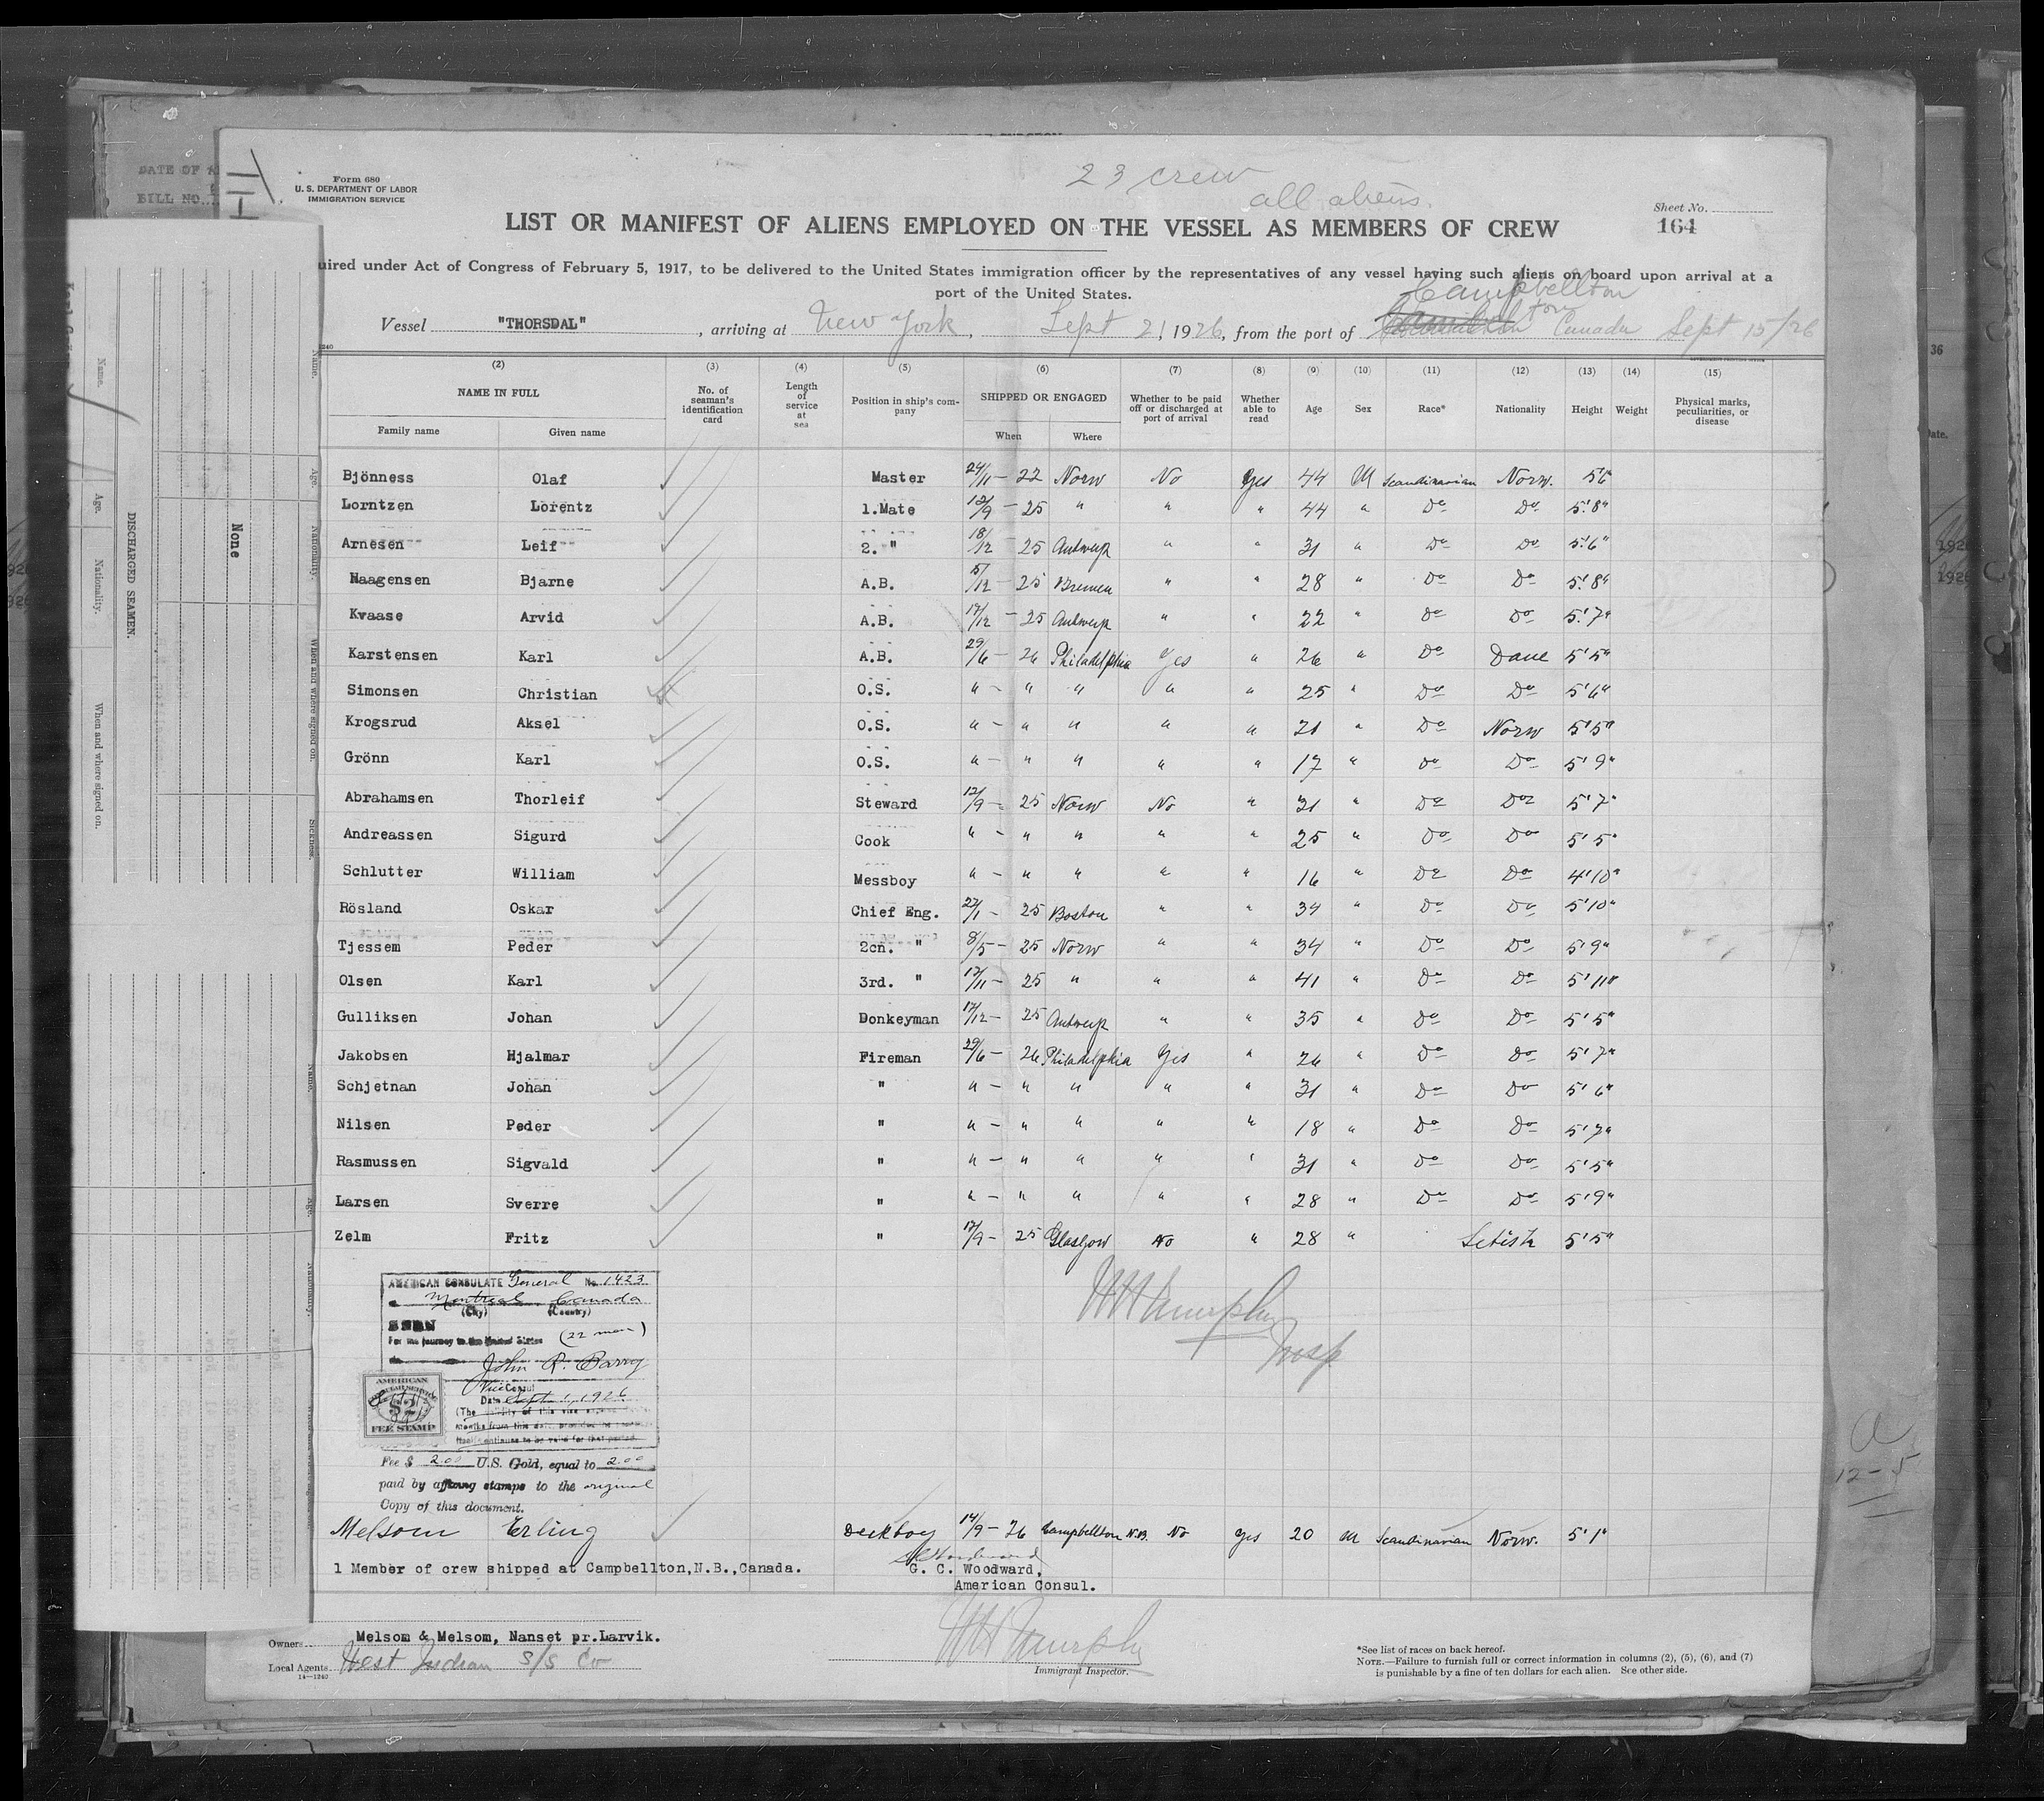 23 crew
all aliens.
Form 680
U. S. DEPARTMENT OF LABOR
IMMIGRATION SERVICE
Sheet No.
164
LIST OR MANIFEST OF ALIENS EMPLOYED ON THE VESSEL AS MEMBERS OF CREW
uired under Act of Congress of February 5, 1917, to be delivered to the United States immigration officer by the representatives of any vessel having such aliens on board upon arrival at a
port of the United States.
Campbellton
Vessel "THORSDAL", arriving at New York, Sept 21, 1926, from the port of Canada Sept 15/26
(2) (3) (4) (5) (6) (7) (8) (9) (10) (11) (12) (13) (14) (15)
NAME IN FULL No. of seaman's identification card Length of service at sea Position in ship's company SHIPPED OR ENGAGED Whether to be paid off or discharged at port of arrival Whether able to read Age Sex Race* Nationality Height Weight Physical marks, peculiarities, or disease
Family name Given name When Where
Bjönness Olaf Master 24/11 - 22 Norw No Yes 44 M Scandinavian Norw. 5'6"
Lorntzen Lorentz 1.Mate 12/9 - 25 " " " 44 " Do Do 5'8"
Arnesen Leif 2. " 18/12 25 Antwerp " " 31 " Do Do 5'6"
Haagensen Bjarne A.B. 15/12 - 25 Bremen " " 28 " Do Do 5'8"
Kvaase Arvid A.B. 17/12 - 25 Antwerp " " 22 " Do Do 5'7"
Karstensen Karl A.B. 29/6 - 26 Philadelphia Yes " 26 " Do Dane 5'5"
Simonsen Christian O.S. " - " " " " 25 " Do Do 5'6"
Krogsrud Aksel O.S. " - " " " " 21 " Do Norw 5'5"
Grönn Karl O.S. " - " " " " 17 " Do Do 5'9"
Abrahamsen Thorleif Steward 12/9 - 25 Norw No " 31 " Do Do 5'7"
Andreassen Sigurd Cook " - " " " " 25 " Do Do 5'5"
Schlutter William Messboy " - " " " " 16 " Do Do 4'10"
Rösland Oskar Chief Eng. 27/1 - 25 Boston " " 34 " Do Do 5'10"
Tjessem Peder 2cn. " 8/5 - 25 Norw " " 34 " Do Do 5'9"
Olsen Karl 3rd. " 17/11 - 25 " " " 41 " Do Do 5'11"
Gulliksen Johan Donkeyman 17/12 - 25 Antwerp " " 35 " Do Do 5'5"
Jakobsen Hjalmar Fireman 29/6 - 26 Philadelphia Yes " 26 " Do Do 5'7"
Schjetnan Johan " " - " " " " 31 " Do Do 5'6"
Nilsen Peder " " - " " " " 18 " Do Do 5'7"
Rasmussen Sigvald " " - " " " " 31 " Do Do 5'5"
Larsen Sverre " " - " " " " 28 " Do Do 5'9"
Zelm Fritz " 17/9 - 25 Glasgow No " 28 " Letish 5'5"
AMERICAN CONSULATE General No. 1423
Montreal Canada
(City) (Country)
SEEN
For the journey to the United States (22 men)
John R. Barry
Vice Consul
Date Sept 1, 1926
AMERICAN
$2
FEE STAMP
Fee $ 2.00 U.S. Gold, equal to 2.00
paid by affixing stamps to the original
Copy of this document.
W H Murphy
Insp
Melsom Erling Deckboy 14/9 - 26 Campbellton N.B. No Yes 20 M Scandinavian Norw. 5'1"
1 Member of crew shipped at Campbellton,N.B.,Canada.
G. C. Woodward,
American Consul.
W H Murphy
Immigrant Inspector.
Owners Melsom & Melsom, Nanset pr.Larvik.
Local Agents West Indian S/S Co
14—1240
*See list of races on back hereof.
NOTE.—Failure to furnish full or correct information in columns (2), (5), (6), and (7)
is punishable by a fine of ten dollars for each alien. See other side.
DISCHARGED SEAMEN.
None
Name.
Age.
Nationality.
When and where signed on.
Name.
Age.
Nationality.
When and where signed on.
Sickness.
DATE OF
BILL NO.
12-5